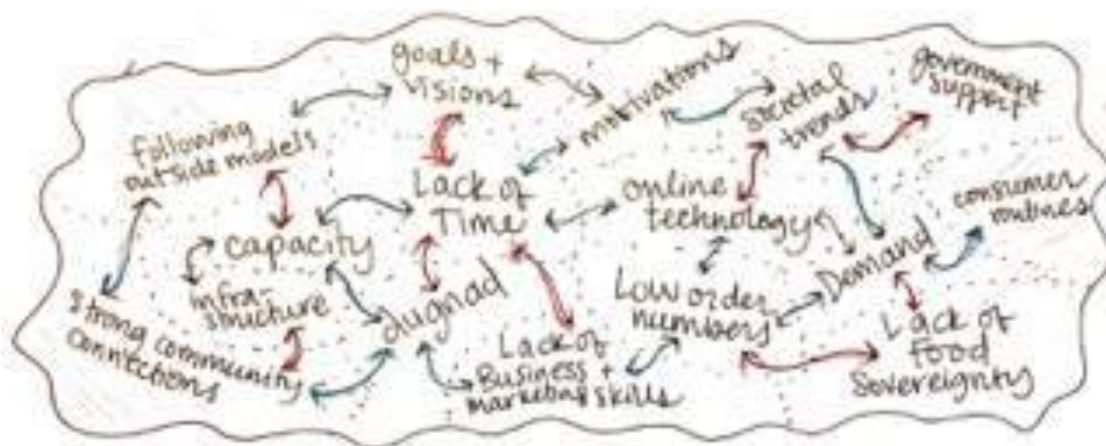 goals +
visions
motivations
societal
trends
government
support
following
outside models
Lack of
Time
online
technology
consumer
routines
capacity
infra-
structure
dugnad
Low order
numbers
Demand
strong community
connections
Lack of
Business +
marketing skills
Lack of
food
Sovereignty